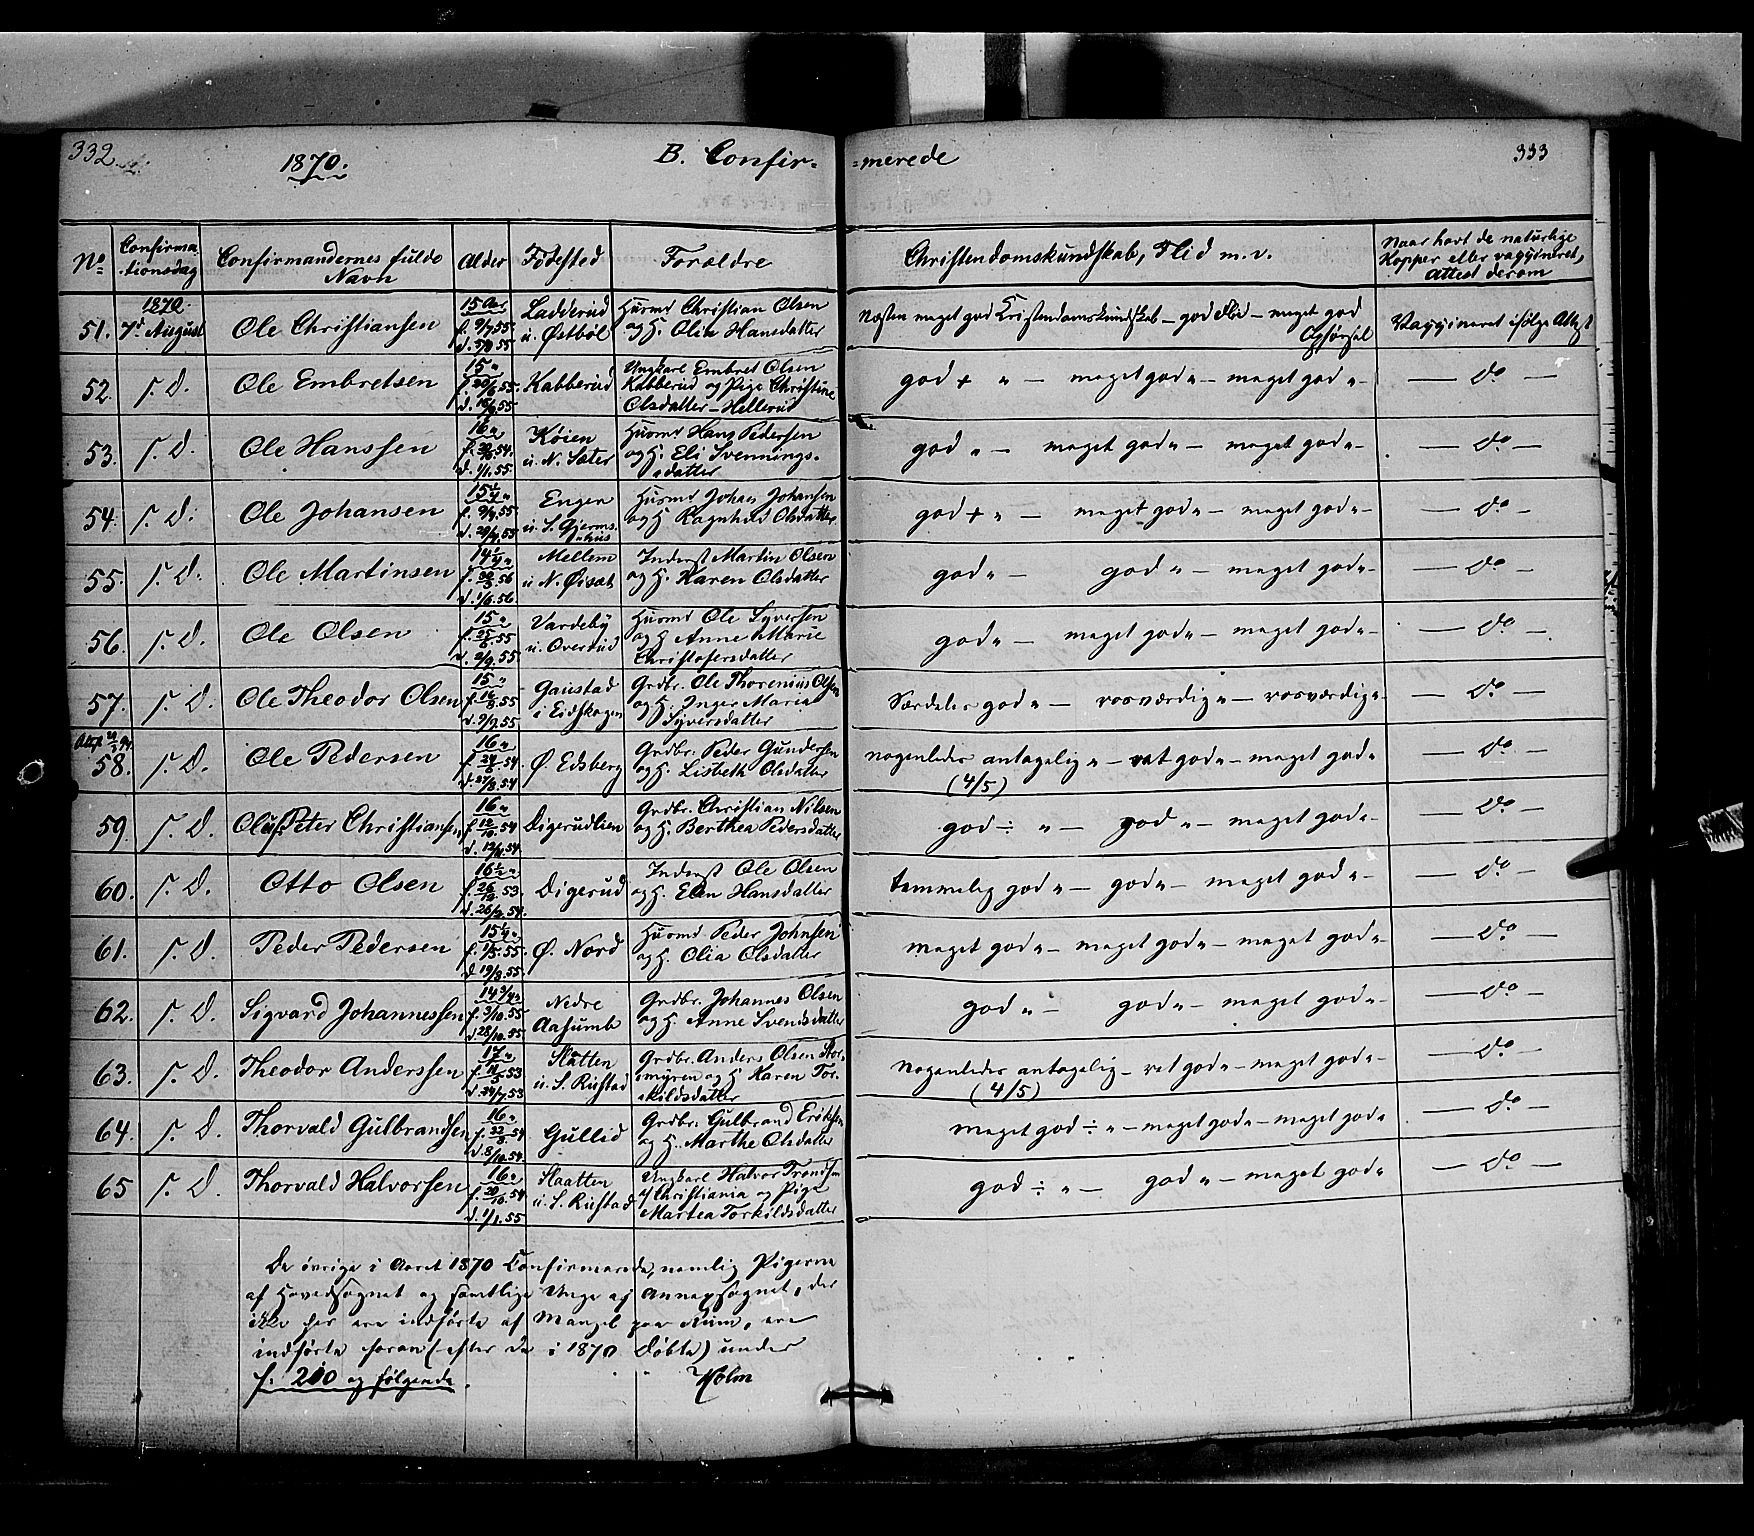 332
1870.
B. Confir-
-merede
333
No
Confirma-
-tionsdag
Confirmandernes fulde
Navn
Alder
Fødested
Forældre
Christendomskundskab, Flid m. v.
Naar havt de naturlige
Kopper eller vaccineret,
attest derom
51.
1870.
7de August
Ole Christiansen
15 Aar
f. 9/7 55.
Ladderud
u. Østbøl
Husmd Christian Olsen
og H. Olia Hansdatter
Næsten meget god Kristendomskundskab - god Flid - meget god
Opførsel
Vaccineret ifølge Attest
52.
s. D.
Ole Embretsen
15 "
Kabberud
Ungkarl Embret Olsen
Kabberud og Pige Christine
Olsdatter - Hellerud
god + " - meget god " - meget god " -
- do -
53.
s. D.
Ole Hanssen
16 "
d. 1/1. 55.
Køien
u. N. Sæter
Husmd Hans Pedersen
og H. Eli Svennings-
-datter
god " - meget god " - meget god " -
- do -
54.
s. D.
Ole Johansen
15 1/4 "
f. 9/4. 55
d. 29/4. 55
Engen
u. S. Gjerms-
-hus
Husmd Johan Johansen
og H Ragnhild Olsdatter
god + " - meget god " - meget god " -
- do -
55.
s. D.
Ole Martinsen
14 1/4 "
d. 1/6. 56.
Mellem
u. N. Øisæt
Inderst Martin Olsen
og H. Karen Olsdatter
god " - god " - meget god " -
- do -
56.
s. D.
Ole Olsen
15 "
f. 25/8 55
d. 2/9. 55
Vardeby
u. Overud
Husmd Ole Syversen
og H Anne Marie
Christofersdatter
god " - meget god " - meget god " -
- do -
57.
s. D.
Ole Theodor Olsen
15 "
d. 9/7. 55
Gaustad
i Eidskogen
Grdbr. Ole Thorenius Olsen
og H. Inger Maria
Syversdatter
Særdeles god " - rosværdig " - rosværdig " -
- do -
58.
s. D.
Ole Pedersen
16 "
d. 27/8. 54
Ø. Edsberg
Grdbr. Peder Gundersen
og H. Lisbeth Olsdatter
nogenledes antagelig " - ret god " - meget god "
(4/5)
- do -
59.
s. D.
Oluf Peter Christiansen
16 "
f. 12/10. 54
d. 12/11. 54.
Digerudlien
Grdbr. Christian Nilsen
og H. Berthea Pedersdatter
god ÷ " - god " - meget god " -
- do -
60.
s. D.
Otto Olsen
16 1/2 "
f. 26/12. 53
d. 26/2. 54.
Digerud
Inderst Ole Olsen
og H. Elen Hansdatter
temmelig god " - god " - meget god " -
- do -
61.
s. D.
Peder Pedersen
15 1/4 "
f. 1/5. 55.
d. 19/8. 55
Ø. Nord
Husmd Peder Johnsen
og H. Olia Olsdatter
meget god " - meget god " - meget god " -
- do -
62.
s. D.
Sigvard Johannessen
14 3/4 "
f. 3/10. 55
d. 28/10. 55
Nedre
Aasumb
Grdbr. Johannes Olsen
og H. Anne Svendsdatter
god " - god " - meget god " -
- do -
63.
s. D.
Theodor Anderssen
17 "
d. 24/7. 53
Slåtten
u. S. Rustad
Grdbr. Anders Olsen Stor-
-myren og H Karen Tor-
-kildsdatter
Nogenledes antagelig - ret god " - meget god " -
(4/5)
- do -
64.
s. D.
Thorvald Gulbrandsen
16 "
d. 8/10. 54
Gullid
Grdbr. Gulbrand Eriksen
og H. Marthe Olsdatter
meget god ÷ " - meget god " - meget god "
- do -
65
s. D.
Thorvald Halvorsen
16 "
d. 1/1. 55
Slaatten
u. S. Rustad
Ungkarl Halvor Trondsen
af Christiania og Pige
Martea Torkildsdatter
god ÷ " - god " - meget god "
- do -
De øvrige i Aaret 1870 Confirmerede, nemlig Pigerne
af Hovedsognet og samtlige Unge af Annexsognet, der
ikke her ere indførte af Mangel paa Rum, ere
indførte foran (efter de i 1870 Døbte) under
f. 210 og følgende.
Holm